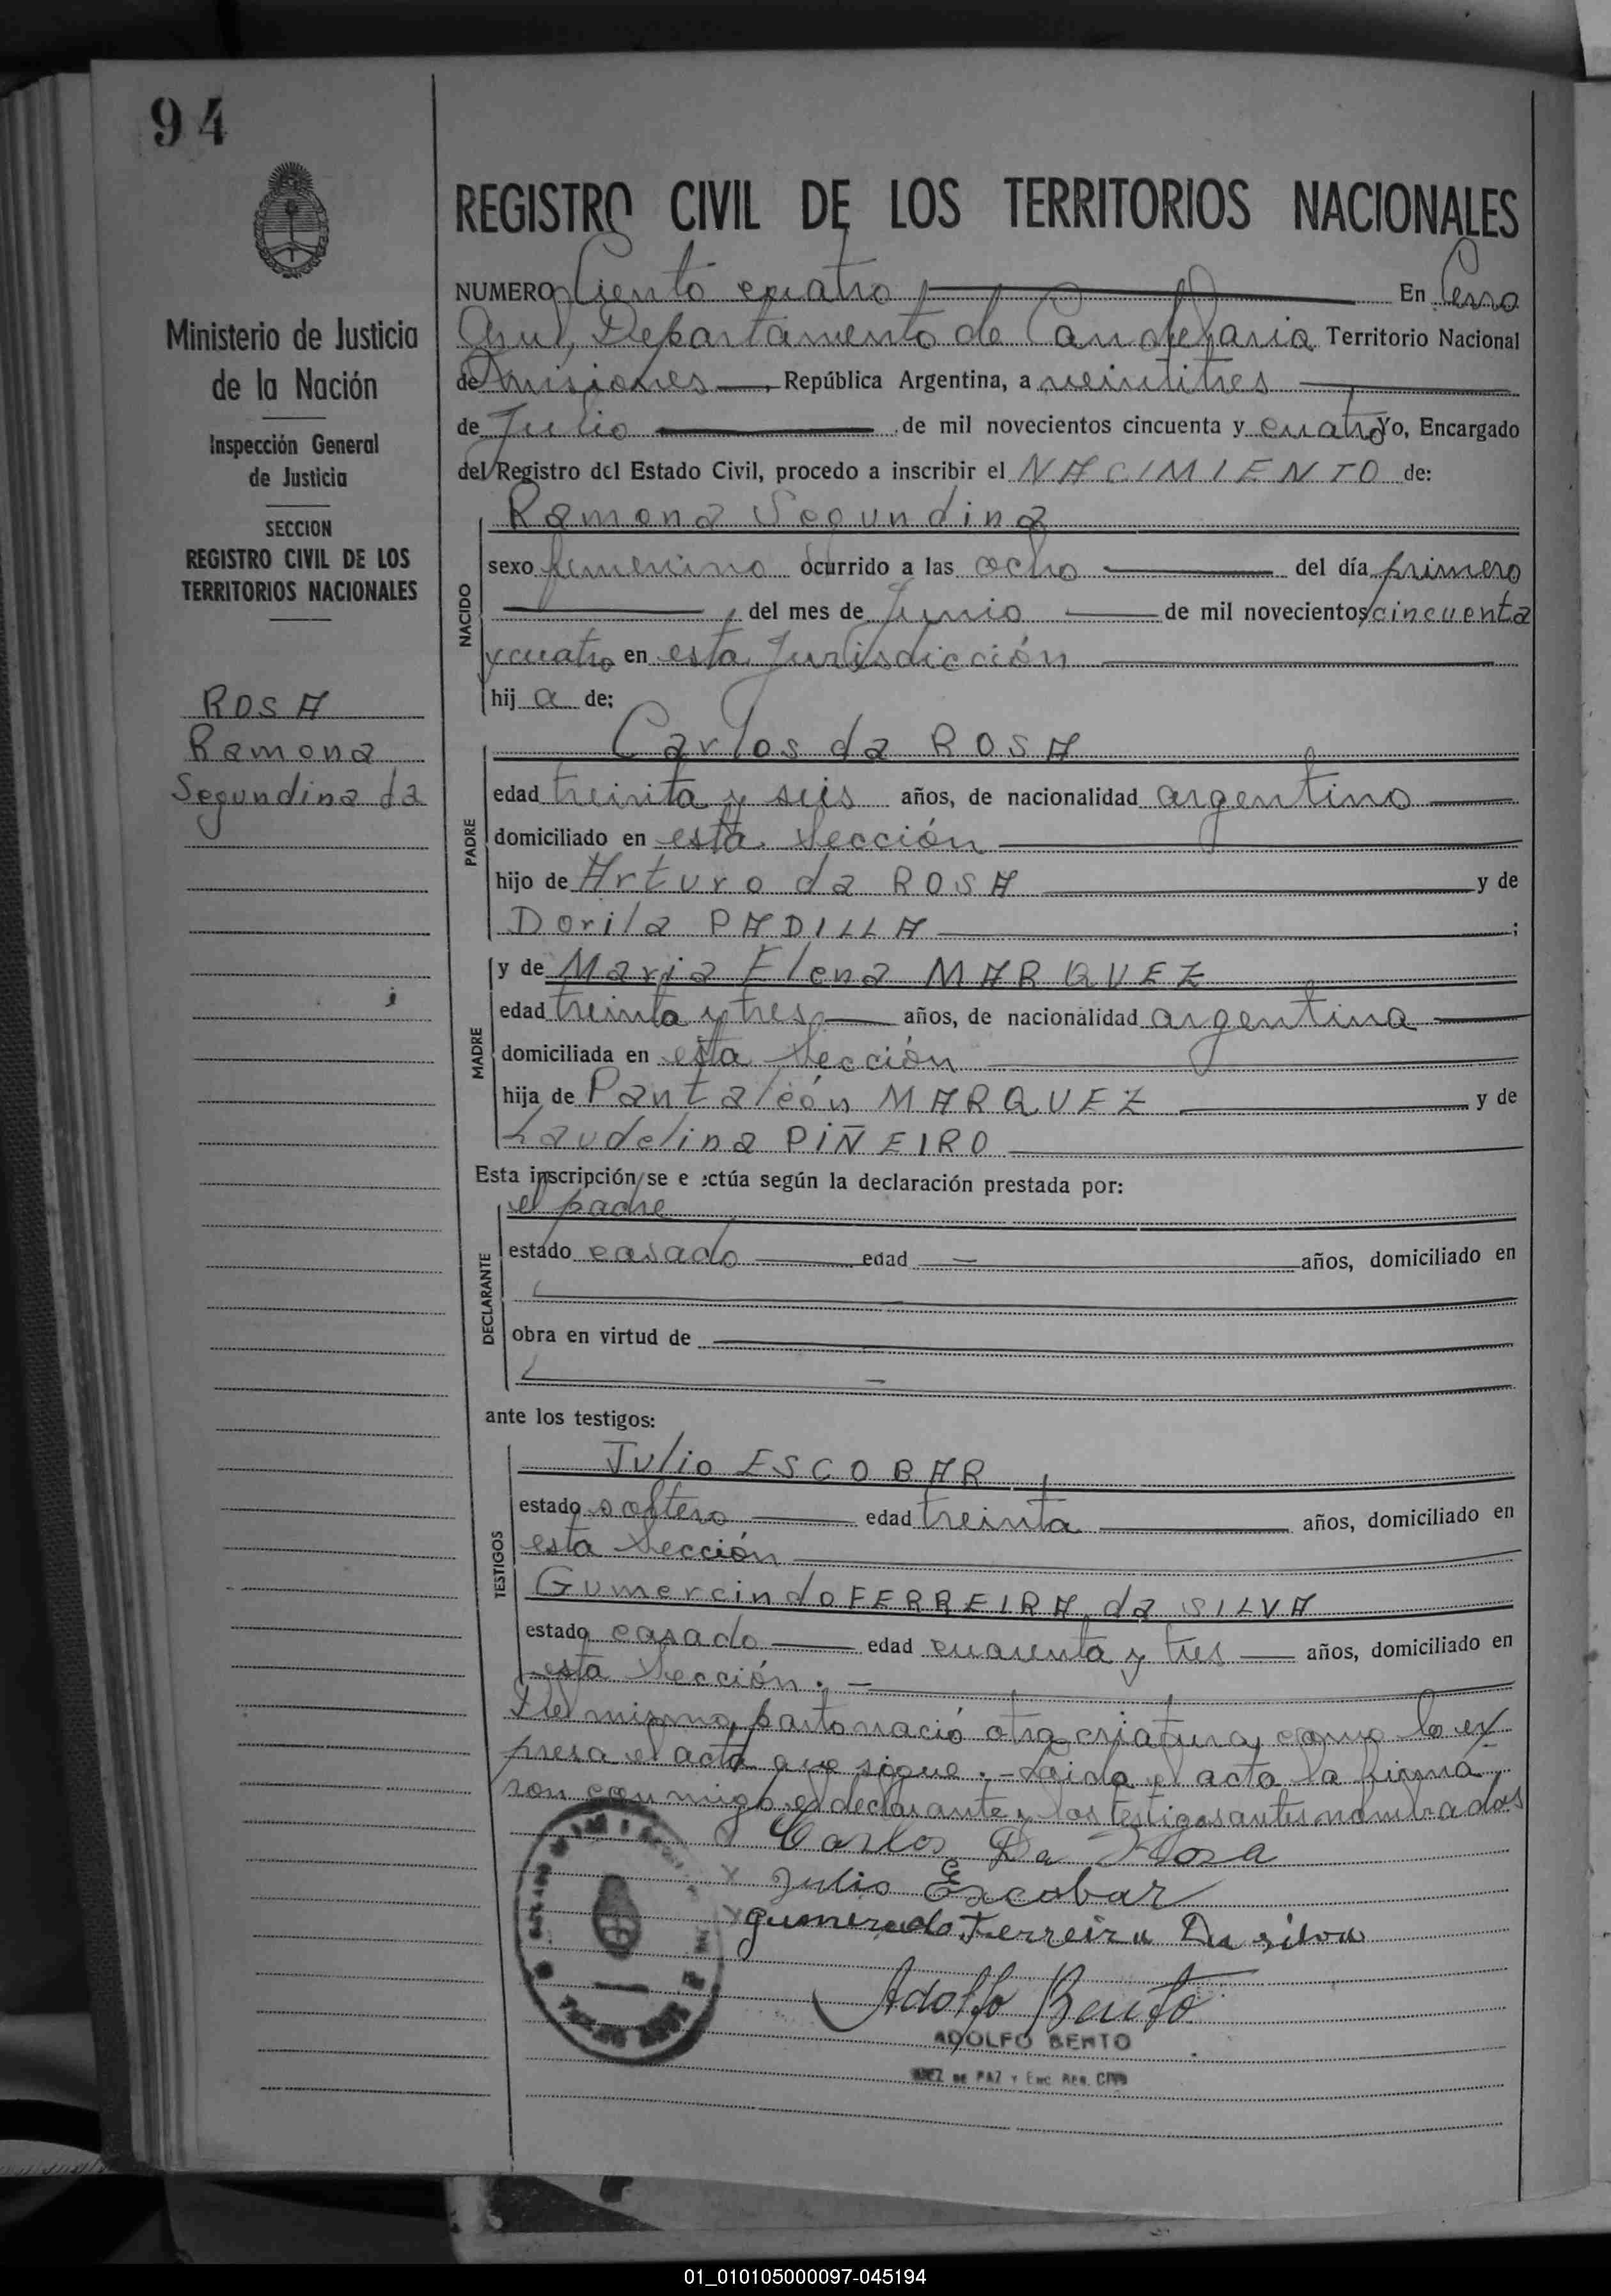 94
Ministerio de Justicia
de la Nación
Inspección General
de Justicia
SECCION
REGISTRO CIVIL DE LOS
TERRITORIOS NACIONALES
ROSA
Ramona
Segundina da
REGISTRO CIVIL DE LOS TERRITORIOS NACIONALES
NUMERO Ciento cuatro En Cerro
Azul, Departamento de Candelaria Territorio Nacional
de Misiones, República Argentina, a veintitres
de Julio de mil novecientos cincuenta y cuatro Yo, Encargado
del Registro del Estado Civil, procedo a inscribir el NACIMIENTO de:
NACIDO
Ramona Segundina
sexo femenino ocurrido a las ocho del día primero
, del mes de Junio de mil novecientos cincuenta
y cuatro en esta Jurisdicción
hij a de:
PADRE
Carlos da ROSA
edad treinta y seis años, de nacionalidad argentino
domiciliado en esta Sección
hijo de Arturo da ROSA y de
Dorila PADILLA ;
MADRE
y de Maria Elena MARQUEZ
edad treinta y tres años, de nacionalidad argentina
domiciliada en esta Sección
hija de Pantaleón MARQUEZ y de
Laudelina PIÑEIRO
Esta inscripción se e ctúa según la declaración prestada por:
DECLARANTE
el padre
estado casado edad — años, domiciliado en
obra en virtud de
ante los testigos:
TESTIGOS
Julio ESCOBAR
estado soltero edad treinta años, domiciliado en
esta Sección
Gumercindo FERREIRA da SILVA
estado casado edad cuarenta y tres años, domiciliado en
esta Sección. —
Del mismo parto nació otra criatura, como lo ex
presa el acta que sigue. - Leida el acta la firma
ron conmigo, el declarante y los testigos antes nombrados
Carlos Da Rosa
x Julio Escobar
x gumercindo Ferreira Da silva
Adolfo Bento
ADOLFO BENTO
JUEZ DE PAZ Y ENC. REG. CIVIL
01_010105000097-045194